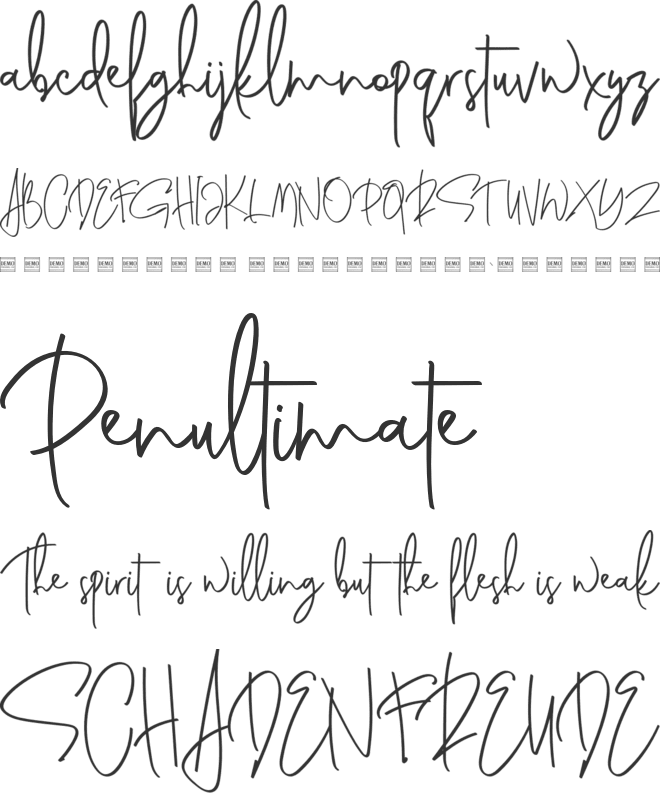 abcdefghijklmnopqrstuvwxyz
ABCDEFGHIJKLMNOPQRSTUVWXYZ
DEMO DEMO DEMO DEMO DEMO DEMO DEMO DEMO DEMO DEMO DEMO DEMO DEMO DEMO DEMO DEMO DEMO DEMO DEMO DEMO DEMO DEMO DEMO DEMO DEMO DEMO
Penultimate
The spirit is willing but the flesh is weak
SCHADENFREUDE